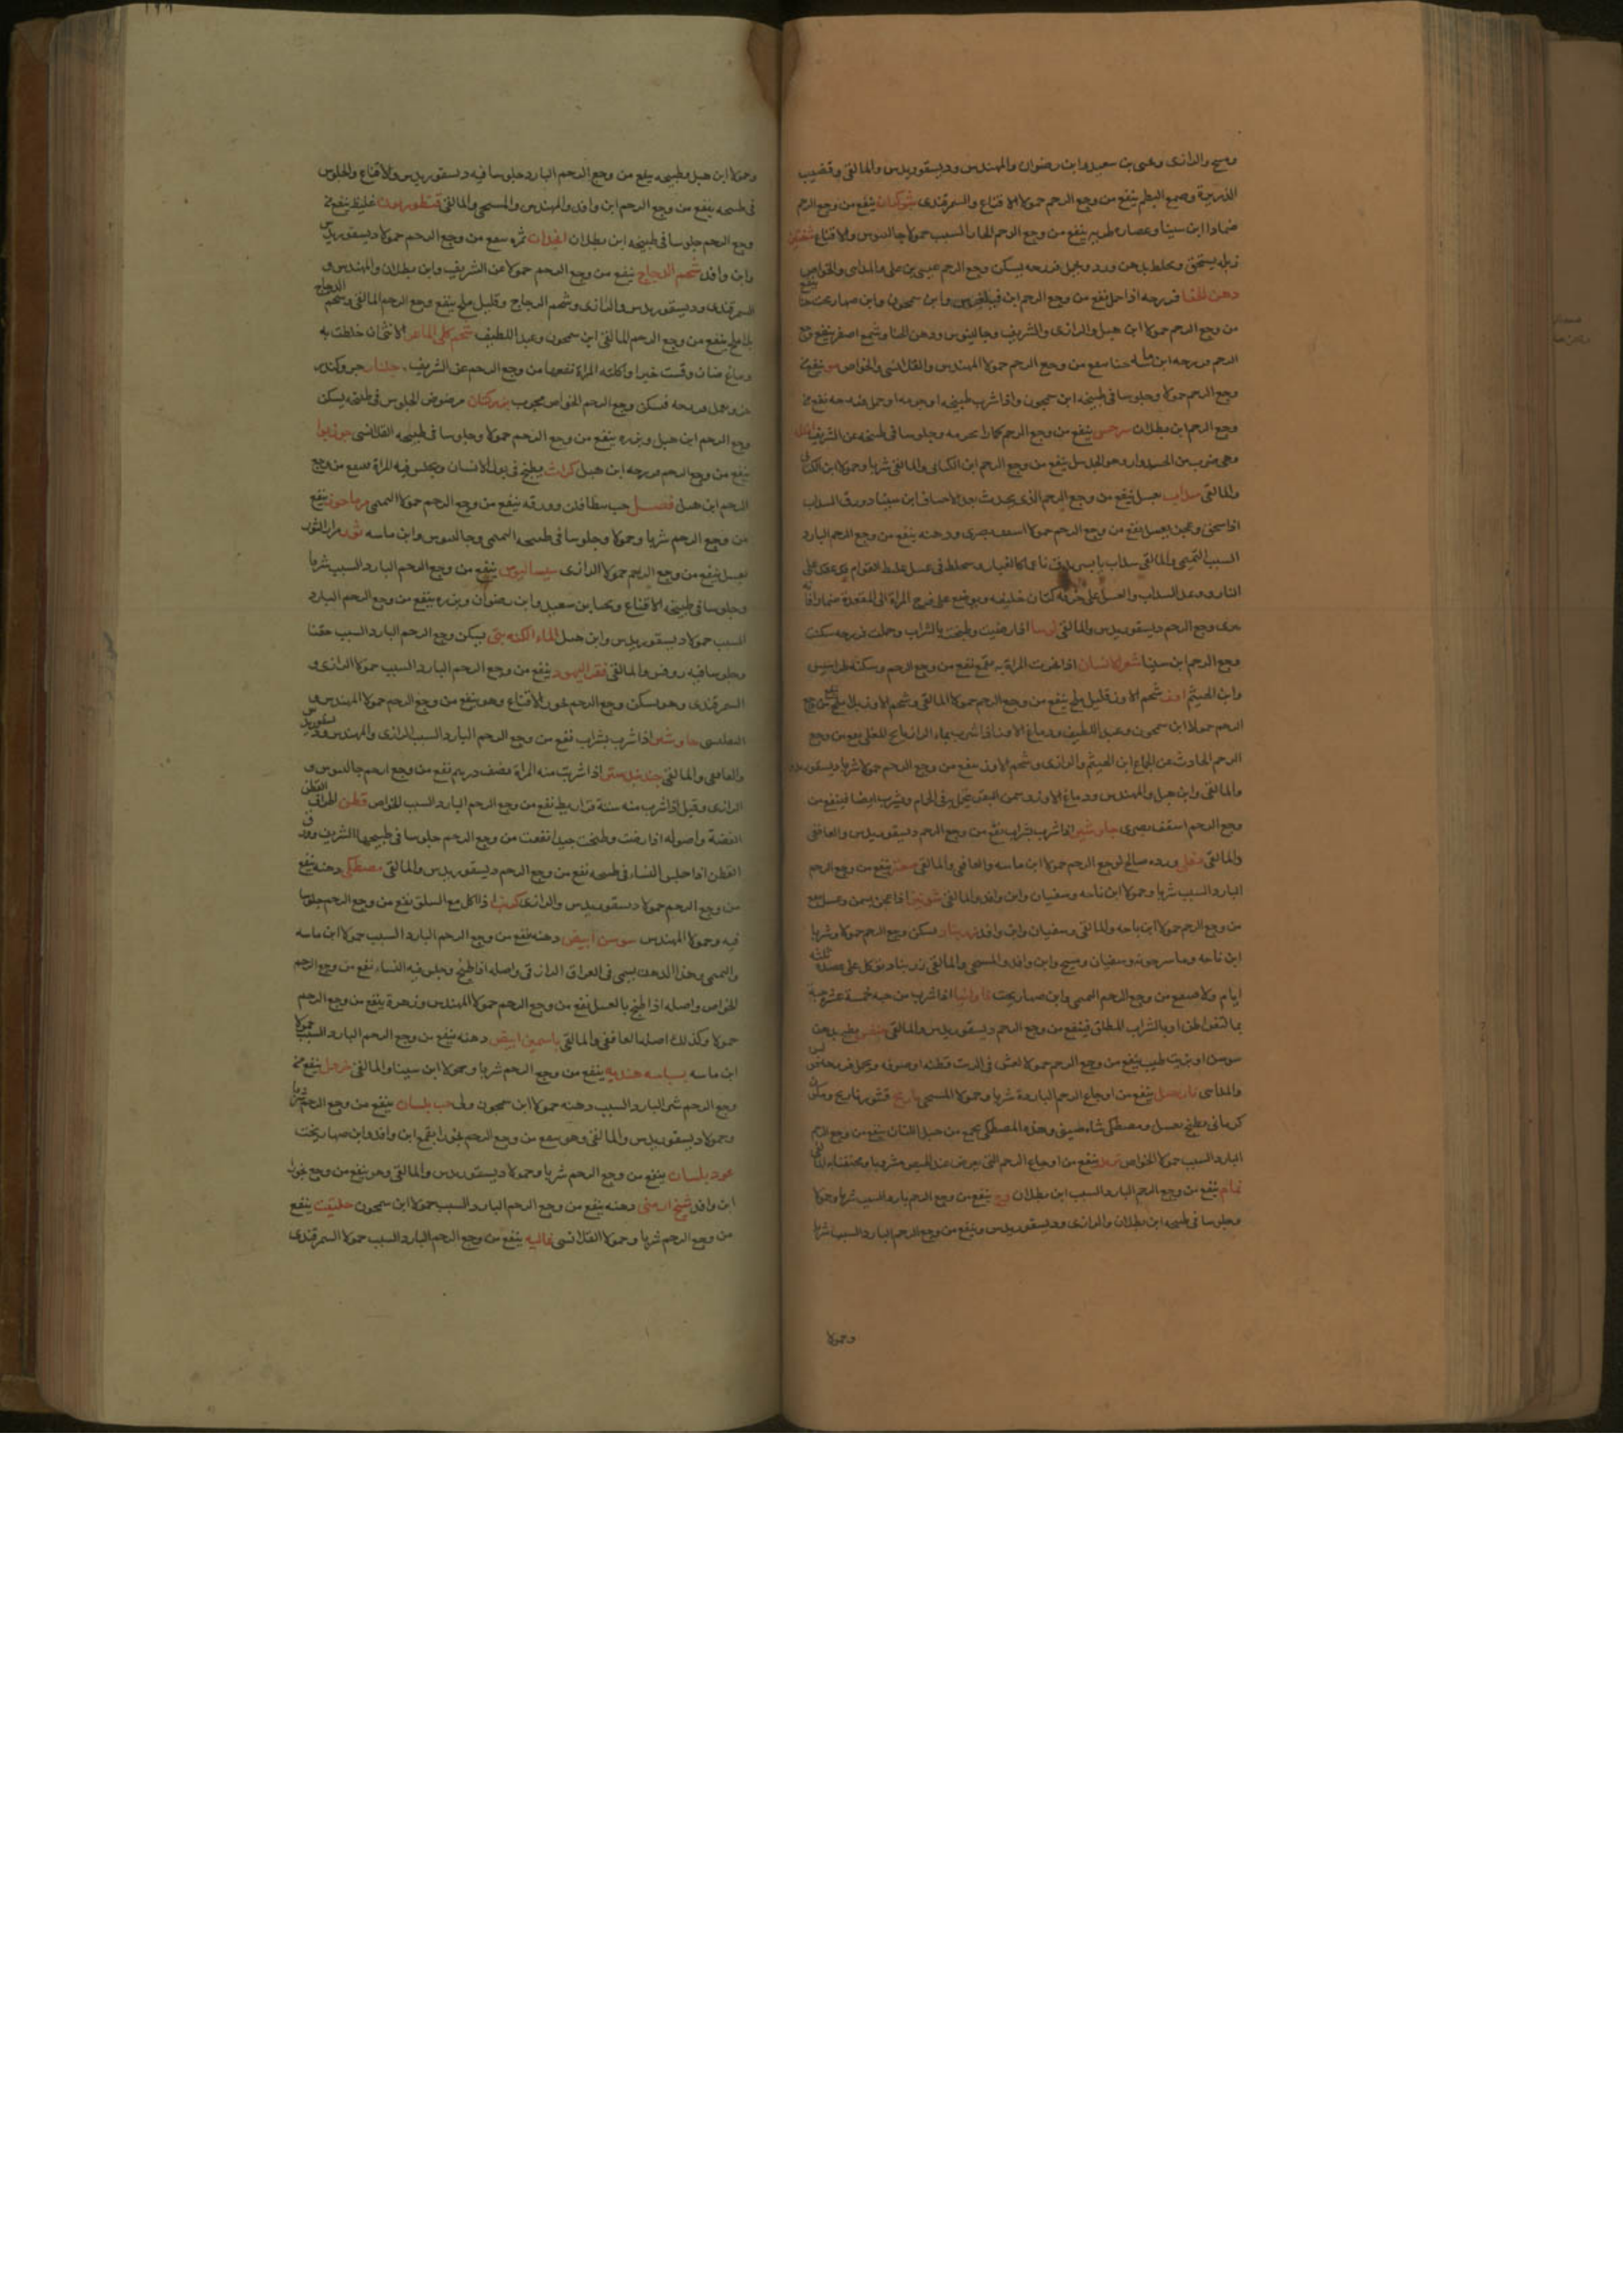 ومسيح والرازى وعيسى بن سعيد وابن رضوان والمهندس وديسقوريدس والمالقى وقضيب
الذريرة وصمغ البطم ينفع من وجع الرحم حمولا الاقناع والسمرقندى شوكران ينفع من وجع الرحم
ضمادا ابن سينا وعصاره طريه ينفع من وجع الرحم الحار السبب حمولا جالينوس والاقناع
زبله يستحق ويخلط بدهن ورد ويحمل فرزجه يسكن وجع الرحم عيسى بن على والمداسى والخواص
دهن الحنا فرزجه اذا حمل نفع من وجع الرحم ابن وابن سمجون وابن صهاربخت حنا ينفع
من وجع الرحم حمولا ابن هبل والرازى والشريف وجالينوس ودهن الحنا وشمع اصفر ينفع وجع
الرحم فرزجه ابن ماسه حنا ينفع من وجع الرحم حمولا المهندس والقلانسى والخواص مو ينفع من
وجع الرحم حمولا وجلوسا فى طبيخه ابن سمجون واذا شرب طبيخه او جرمه او حمل فرزجه نفع من
وجع الرحم ابن بطلان ينفع من وجع الرحم كمادا بجرمه وجلوسا فى طبيخه عن الشريف
وهى ضرب من ينفع من وجع الرحم ابن الكتانى والمالقى شربا وحمولا ابن الكتانى
والمالقى سداب بعسل ينفع من وجع الرحم الذى يحدث ابن سينا وورق السداب
اذا سحق وعجن بعسل نفع من وجع الرحم حمولا اسقف بصرى ودهنه ينفع من وجع الرحم البارد
السبب التميمى والمالقى سداب يابس يدق ناعما كالغبار ويخلط فى عسل غليظ القوام على
النار السداب والعسل على خرقة كتان ويوضع على فرج المراة الى المقعدة ضمادا فانه
وجع الرحم ديسقوريدس والمالقى اذا رضت وطبخت بالشراب وحملت فرزجه سكنت
وجع الرحم ابن سينا شعر الانسان اذا بخرت المراة به نفع من وجع الرحم وسكنه
وابن الهيثم اوز شحم الاوز بقليل ملح ينفع من وجع الرحم حمولا المالقى وشحم الاوز بلا ملح ينفع من وجع
الرحم حمولا ابن سمجون وعبد اللطيف ودماغ الاوز اذا شرب بماء الرازيانج المغلى نفع من وجع
الرحم الحادث عن الجماع ابن الهيثم والرازى وشحم الاوز ينفع من وجع الرحم حمولا شربا ديسقوريدس
والمالقى وابن هبل والمهندس ودماغ الاوز وسمن البقر فى الحمام ويشرب ايضا فينفع من
وجع الرحم اسقف بصرى جاوشير اذا شرب بشراب نفع من وجع الرحم ديسقوريدس والغافقى
والمالقى ورده صالح لوجع الرحم حمولا ابن ماسه والغافقى والمالقى ينفع من وجع الرحم
البارد السبب شربا وحمولا ابن ناحه وسفيان وابن وافد والمالقى شونيز اذا عجن بسمن وعسل نفع
من وجع الرحم حمولا ابن ناحه والمالقى وسفيان وابن وافد زرنباد يسكن وجع الرحم حمولا وشربا
ابن ناحه وماسرجونه وسفيان ومسيح وابن وافد والمسيحى والمالقى زرنباد يؤكل على ثلثة
ايام ولاء ينفع من وجع الرحم التميمى وابن صهاربخت فاوانيا اذا شرب من حبه خمسة عشر حبة
بماء القراطن او بالشراب المطلق فينفع من وجع الرحم ديسقوريدس والمالقى يطبخ بدهن
سوسن او بزيت طيب ينفع من وجع الرحم حمولا فى الزيت قطنه او صوفه ويحمل فرزجه
والمداسى نارجيل ينفع من اوجاع الرحم الباردة شربا وحمولا المسيحى نارنج قشور نارنج
كرمانى يطبخ بعسل ومصطكى وهذه المصطكى تجمع من جبل اللبان ينفع من وجع الرحم
البارد السبب حمولا الخواص ينفع من اوجاع الرحم التى يعرض عند الحيض مشروبا ومحتقنا به المالقى
نمام ينفع من وجع الرحم البارد السبب ابن بطلان وج ينفع من وجع الرحم البارد السبب شربا وحمولا
وجلوسا فى طبيخه ابن بطلان والرازى وديسقوريدس وينفع من وجع الرحم البارد السبب شربا
وحمولا
وحمولا ابن هبل وطبيخه ينفع من وجع الرحم البارد جلوسا فيه ديسقوريدس والاقناع والجلوس
فى طبيخه ينفع من وجع الرحم ابن وافد والمهندس والمسيحى والمالقى قنطوريون غليظ ينفع من
وجع الرحم جلوسا فى طبيخه ابن بطلان ثمره ينفع من وجع الرحم حمولا ديسقوريدس
وابن وافد شحم الدجاج ينفع من وجع الرحم حمولا عن الشريف وابن بطلان والمهندس و
السمرقندى وديسقوريدس والرازى وشحم الدجاج وقليل ملح ينفع وجع الرحم المالقى وشحم الدجاج
بلا ملح ينفع من وجع الرحم المالقى ابن سمجون وعبد اللطيف شحم كلى الماعز الانثى ان خلطت به
دماغ ضان وفتت خبزا واكلته المراة نفعها من وجع الرحم عن الشريف جلنار وكندر
فرزجه فيسكن وجع الرحم الخواص مجرب بزر كتان مرضوض الجلوس فى طبيخه يسكن
وجع الرحم ابن هبل وبزره ينفع من وجع الرحم حمولا وجلوسا فى طبيخه القلانسى جوزبوا
ينفع من وجع الرحم فرزجه ابن هبل كراث يطبخ فى بول الانسان ويجلس فيه المراة فينفع من وجع
الرحم ابن هبل حب وورقه ينفع من وجع الرحم حمولا التميمى مرماحوز ينفع
من وجع الرحم شربا وحمولا وجلوسا فى طبيخه التميمى وجالينوس وابن ماسه ثور مرار الثور
بعسل ينفع من وجع الرحم حمولا الرازى سيساليوس ينفع من وجع الرحم البارد السبب شربا
وجلوسا فى طبيخه الاقناع وعيسى بن سعيد وابن رضوان وبزره ينفع من وجع الرحم البارد
السبب حمولا ديسقوريدس وابن هبل الماء الكبريتى يسكن وجع الرحم البارد السبب حقنا
وجلوسا فيه روفس والمالقى قفر اليهود ينفع من وجع الرحم البارد السبب حمولا الرازى و
السمرقندى وهو يسكن وجع الرحم بخورا الاقناع وهو ينفع من وجع الرحم حمولا المهندس و
التفليسى جاوشير اذا شرب بشراب نفع من وجع الرحم البارد السبب الرازى والمهندس وديسقوريدس
والغافقى والمالقى جندبيدستر اذا شربت منه المراة نصف درهم نفع من وجع الرحم جالينوس و
الرازى وقيل اذا شرب منه ستة قراريط نفع من وجع الرحم البارد السبب الخواص قطن اطراف القطن
الغضة واصوله اذا رضت وطبخت جيدا نفعت من وجع الرحم جلوسا فى طبيخها الشريف وورق
القطن اذا جلس النساء فى طبيخه نفع من وجع الرحم ديسقوريدس والمالقى مصطكى دهنه ينفع
من وجع الرحم حمولا ديسقوريدس والرازى كرنب اذا اكل مع السلق نفع من وجع الرحم جلوسا
فيه وحمولا المهندس سوسن ابيض دهنه ينفع من وجع الرحم البارد السبب حمولا ابن ماسه
والتميمى وهذا الدهن يسمى فى العراق الرازقى واصله اذا طبخ وجلس فيه النساء نفع من وجع الرحم
الخواص واصله اذا طبخ بالعسل نفع من وجع الرحم حمولا المهندس وزهرة ينفع من وجع الرحم
حمولا وكذلك اصله الغافقى والمالقى ياسمين ابيض دهنه ينفع من وجع الرحم البارد السبب حمولا
ابن ماسه بسباسه هنديه ينفع من وجع الرحم شربا وحمولا ابن سينا والمالقى ينفع من
وجع الرحم البارد السبب دهنه حمولا ابن سمجون حب بلسان ينفع من وجع الرحم شربا
وحمولا ديسقوريدس والمالقى وهو ينفع من وجع الرحم بخورا بقمع ابن وافد وابن صهاربخت
عود بلسان ينفع من وجع الرحم شربا وحمولا ديسقوريدس والمالقى وهو ينفع من وجع بخورا
ابن وافد شيح ارمنى دهنه ينفع من وجع الرحم البارد السبب حمولا ابن سمجون حلتيت ينفع
من وجع الرحم شربا وحمولا القلانسى غاليه ينفع من وجع الرحم البارد السبب حمولا السمرقندى